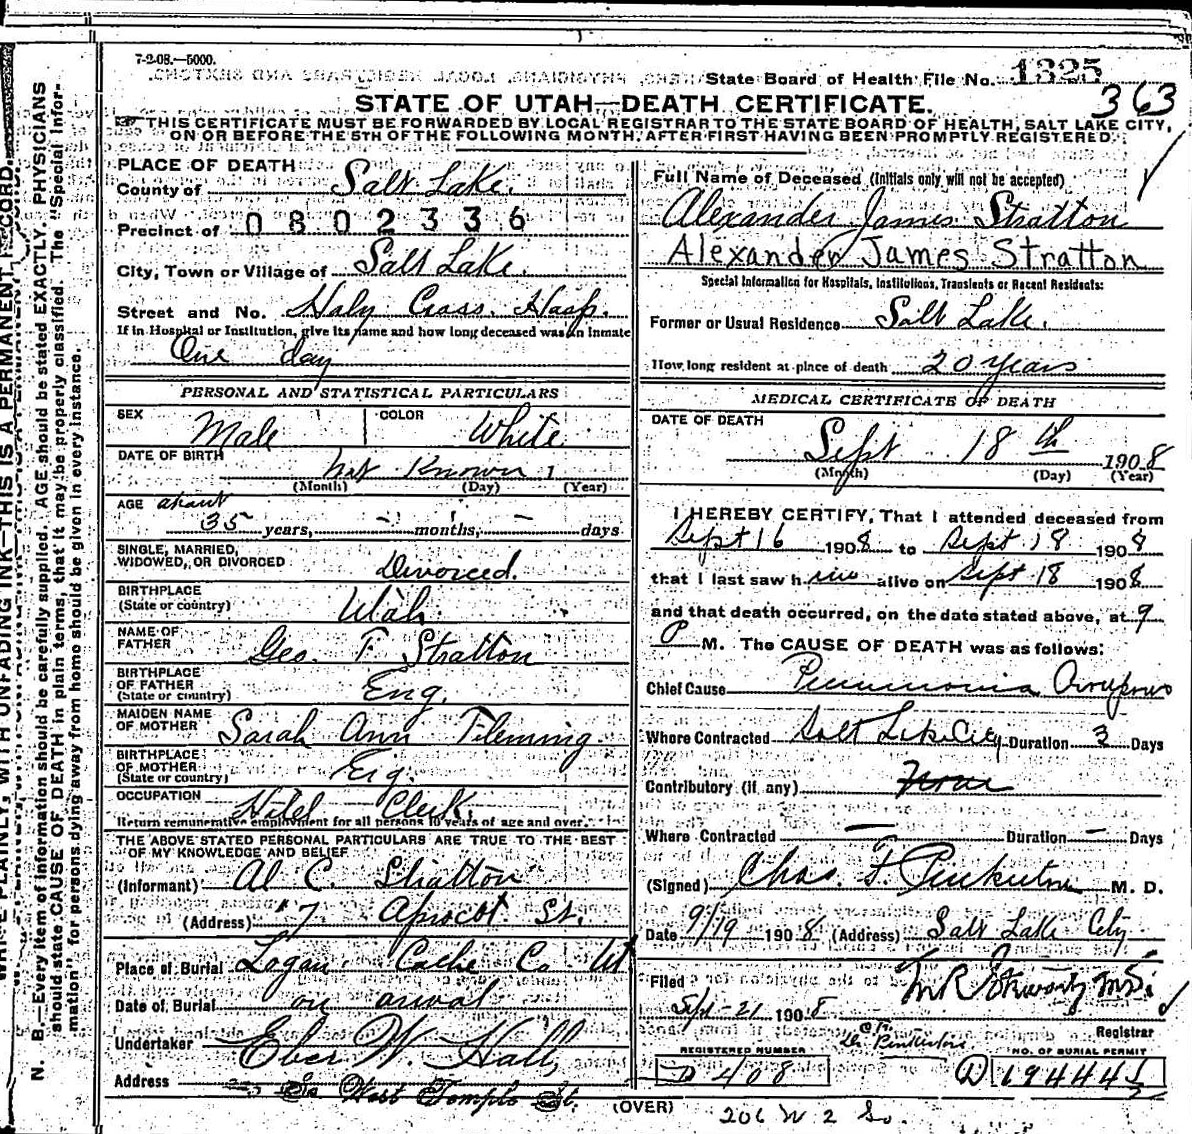 7-2-08.—5000.
State Board of Health File No. 1325
363
STATE OF UTAH—DEATH CERTIFICATE.
THIS CERTIFICATE MUST BE FORWARDED BY LOCAL REGISTRAR TO THE STATE BOARD OF HEALTH, SALT LAKE CITY,
ON OR BEFORE THE 5TH OF THE FOLLOWING MONTH, AFTER FIRST HAVING BEEN PROMPTLY REGISTERED.
PLACE OF DEATH
County of Salt Lake.
Precinct of 0802336
City, Town or Village of Salt Lake.
Street and No. Holy Cross Hosp.
If in Hospital or Institution, give its name and how long deceased was an inmate
One day
PERSONAL AND STATISTICAL PARTICULARS
SEX Male COLOR White
DATE OF BIRTH not Known 1
(Month) (Day) (Year)
AGE about
35 years, - months, - days
SINGLE, MARRIED,
WIDOWED, OR DIVORCED Divorced.
BIRTHPLACE
(State or country) Utah
NAME OF
FATHER Geo. F Stratton
BIRTHPLACE
OF FATHER
(State or country) Eng.
MAIDEN NAME
OF MOTHER Sarah Ann Fleming
BIRTHPLACE
OF MOTHER
(State or country) Eng.
OCCUPATION Hotel Clerk
Return remunerative employment for all persons 10 years of age and over.
THE ABOVE STATED PERSONAL PARTICULARS ARE TRUE TO THE BEST
OF MY KNOWLEDGE AND BELIEF
(Informant) Al C. Stratton
(Address) #7 Apricot St.
Place of Burial Logan Cache Co Ut
Date of Burial on arival
Undertaker Eber W. Hall,
Address So West Temple St.
(OVER)
206 W 2 So.
Full Name of Deceased (Initials only will not be accepted)
Alexander James Stratton
Alexander James Stratton
Special Information for Hospitals, Institutions, Transients or Recent Residents:
Former or Usual Residence Salt Lake.
How long resident at place of death 20 Years
MEDICAL CERTIFICATE OF DEATH
DATE OF DEATH
Sept 18th 1908
(Month) (Day) (Year)
I HEREBY CERTIFY, That I attended deceased from
Sept 16 1908 to Sept 18 1908
that I last saw him alive on Sept 18 1908
and that death occurred, on the date stated above, at 9
P M. The CAUSE OF DEATH was as follows:
Chief Cause Pneumonia
Where Contracted Salt Lake City Duration 3 Days
Contributory (if any) None
Where Contracted — Duration — Days
(Signed) Chas. F. Pinkerton M. D.
Date 9/19 1908 (Address) Salt Lake City
Filed
Sept-21 1908
Registrar
REGISTERED NUMBER
D 408
NO. OF BURIAL PERMIT
N. B.—Every item of information should be carefully supplied. AGE should be stated EXACTLY. PHYSICIANS
should state CAUSE OF DEATH in plain terms, that it may be properly classified. The "Special Infor-
mation" for persons dying away from home should be given in every instance.
WRITE PLAINLY, WITH UNFADING INK—THIS IS A PERMANENT RECORD.